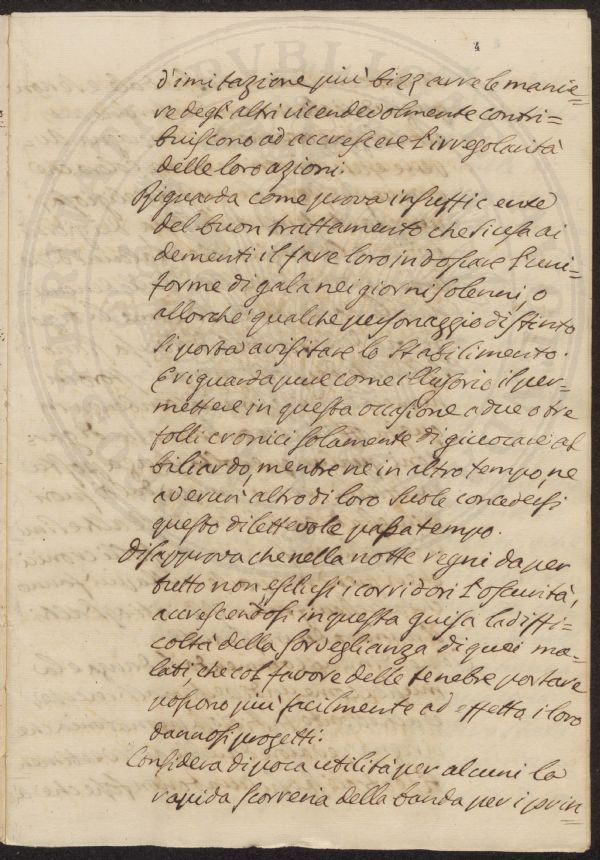 4
d'imitazione più bizzarre le manie=
re degli altri vicendevolmente contri=
buiscono ad accrescere l'irregolarità
delle loro azioni.
Riguarda come prova insufficiente
del buon trattamento che si usa ai
dementi il fare loro indossare l'uni=
forme di gala nei giorni solenni, o
allorchè qualche personaggio distinto
si porta a visitare lo Stabilimento.
E riguarda pure come illusorio il per=
mettere in questa occasione a due o tre
folli cronici solamente di giuocare al
biliardo, mentre ne in altro tempo, ne
ad verun' altro di loro suole concedersi
questo dilettevole passatempo.
Disapprova che nella notte regni da per
tutto non esclusi i corridori l'oscurità,
accrescendosi in questa guisa la diffi=
coltà della sorveglianza di quei ma=
lati, che col favore delle tenebre portare
possono più facilmente ad effetto i loro
dannosi progetti.
Considera di poca utilità per alcuni la
rapida scorreria della banda per i prin